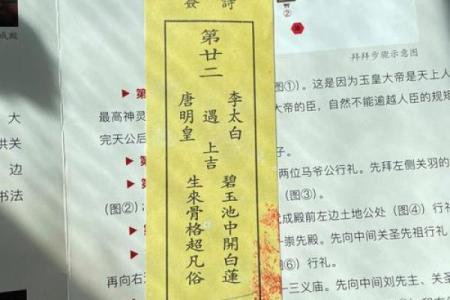 簽詩
第廿二
李太白
遇
唐明皇
上吉
碧玉池中開白蓮
生來骨格超凡俗
成殿
②
拜拜步骤示意图
▶第
图①）。这是因为玉皇大帝是天上人
最高神灵
大帝的臣，自然不能逾越人臣的规矩
完天公后
子。
两位马爷公行礼。先拜左侧关羽的
（图②）；
成殿前左边土地公处（图④）行礼
一崇先殿。先向中间关圣先祖行礼
图⑥）行礼。
再向右
一三义庙。先向中间刘先主、关圣
大
洪关
边
书法